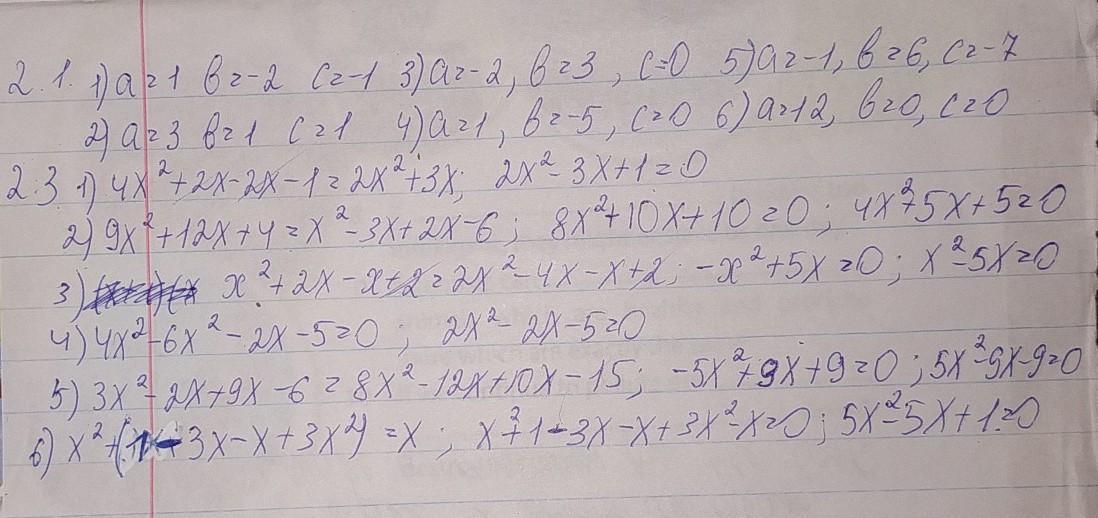 2.1. 1) a=1 в=-2 c=-1 3) a=-2, в=3, c=0 5) a=-1, в=6, c=-7
2) a=3 в=1 c=1 4) a=1, в=-5, c=0 6) a=12, в=0, c=0
2.3 1) 4x²+2x-2x-1=2x²+3x; 2x²-3x+1=0
2) 9x²+12x+4=x²-3x+2x-6; 8x²+10x+10=0; 4x²+5x+5=0
3) x²+2x-x+2=2x²-4x-x+2; -x²+5x=0; x²-5x=0
4) 4x²-6x²-2x-5=0; 2x²-2x-5=0
5) 3x²-2x+9x-6=8x²-12x+10x-15; -5x²+9x+9=0; 5x²-9x-9=0
6) x²+(1-3x-x+3x²)=x; x²+1-3x-x+3x²-x=0; 5x²-5x+1=0